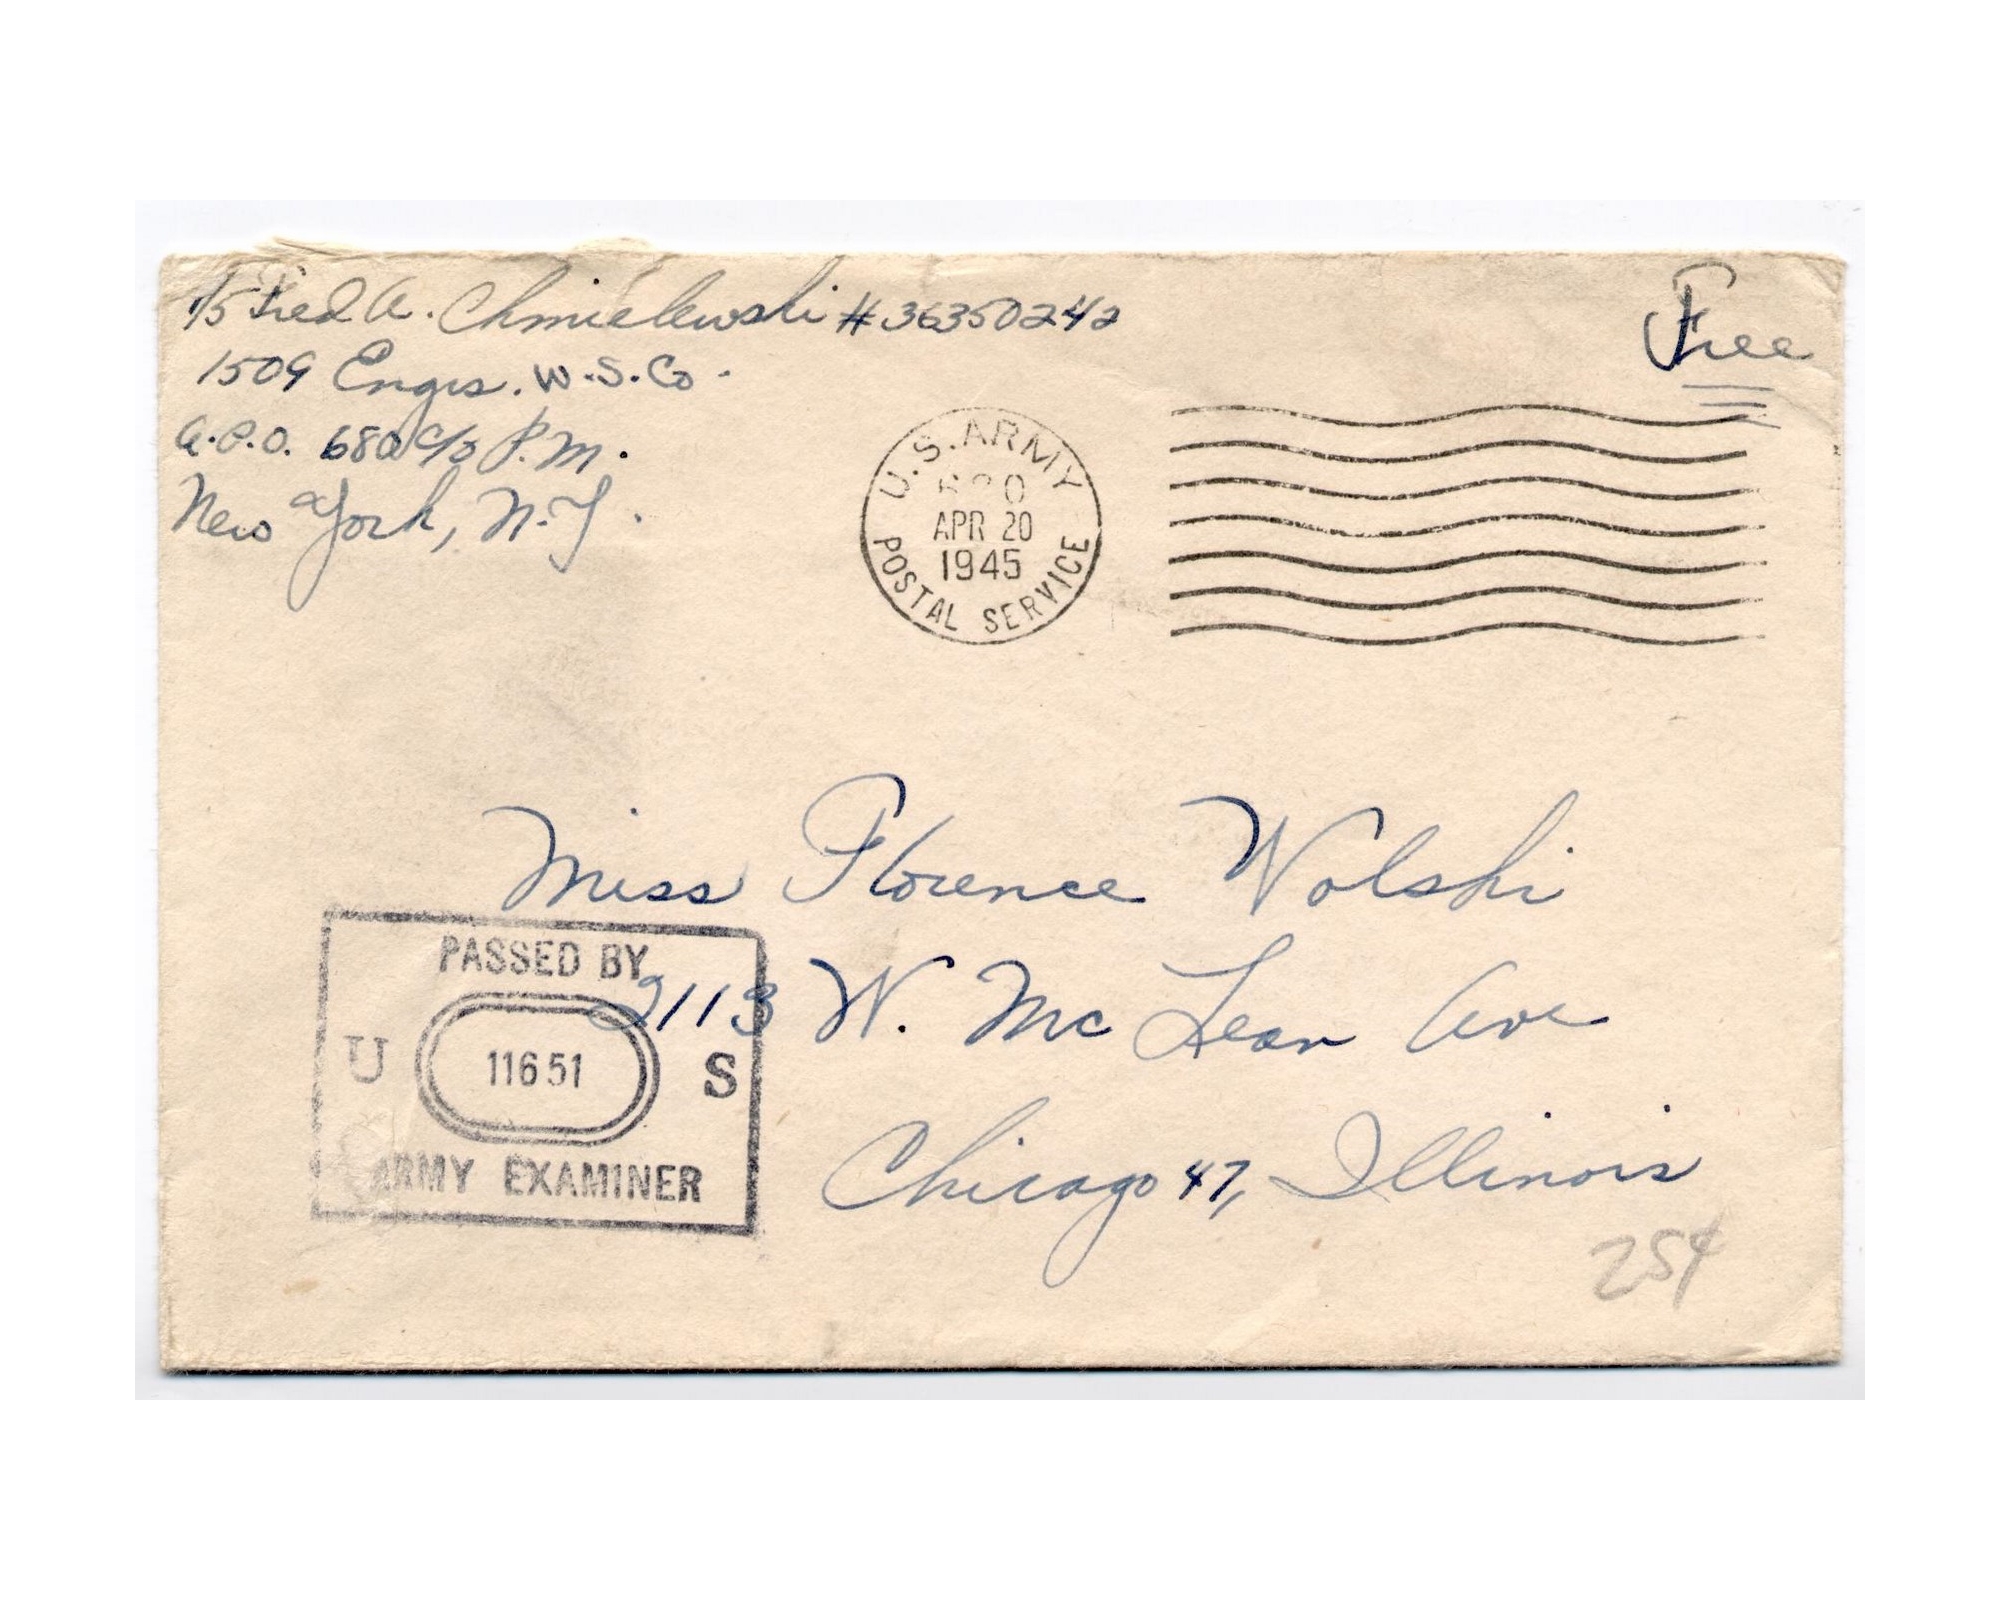 T/5 Fred A. Chmielewski #36350242
1509 Engrs. W.S. Co.
A.P.O. 680 c/o P.M.
New York, N.Y.
Free
U.S. ARMY
APR 20
1945
POSTAL SERVICE
Miss Florence Wolski
2113 W. McLean Ave
Chicago 47, Illinois
PASSED BY
U 11651 S
ARMY EXAMINER
25¢